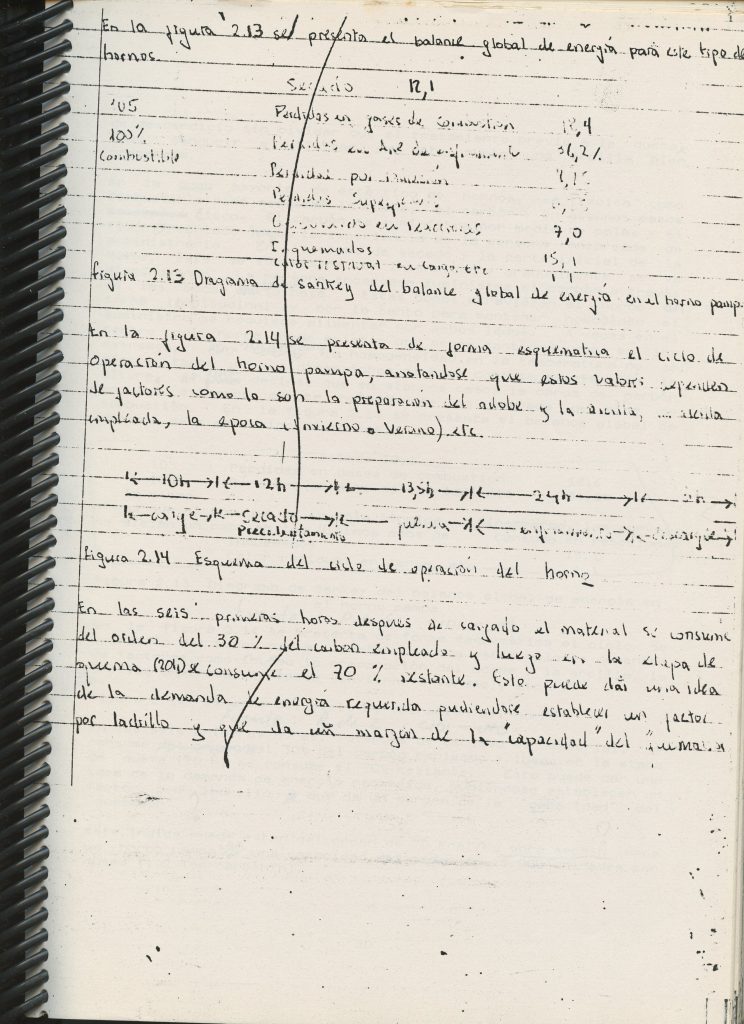 En la figura 2.13 se presenta el balance global de energía para este tipo de
hornos.
Secado 12,1
100%
Combustible
Perdidas en gases de combustion
Perdidas en de enfriamiento 36,2%
Perdidas por
Perdidas
en reacciones 7,0
Inquemados
Calor residual en carga, etc 15,1
figura 2.13 Diagrama de sankey del balance global de energía en el horno pampa
En la figura 2.14 se presenta de forma esquematica el ciclo de
Operación del horno pampa, anotandose que estos valores dependen
de factores como lo son la preparación del adobe y la
empleada, la epoca (invierno o verano) etc.
10h 12h 13,5h 24h 2h
cargue secado quema enfriamiento descargue
Precalentamiento
figura 2.14 Esquema del ciclo de operación del horno
En las seis primeras horas despues de cargado el material se consume
del orden del 30 % del carbon empleado y luego en la etapa de
quema se consume el 70 % restante. Esto puede dar una idea
de la demanda de energía requerida pudiendose establecer un factor
por ladrillo y que da un margen de la "capacidad" del